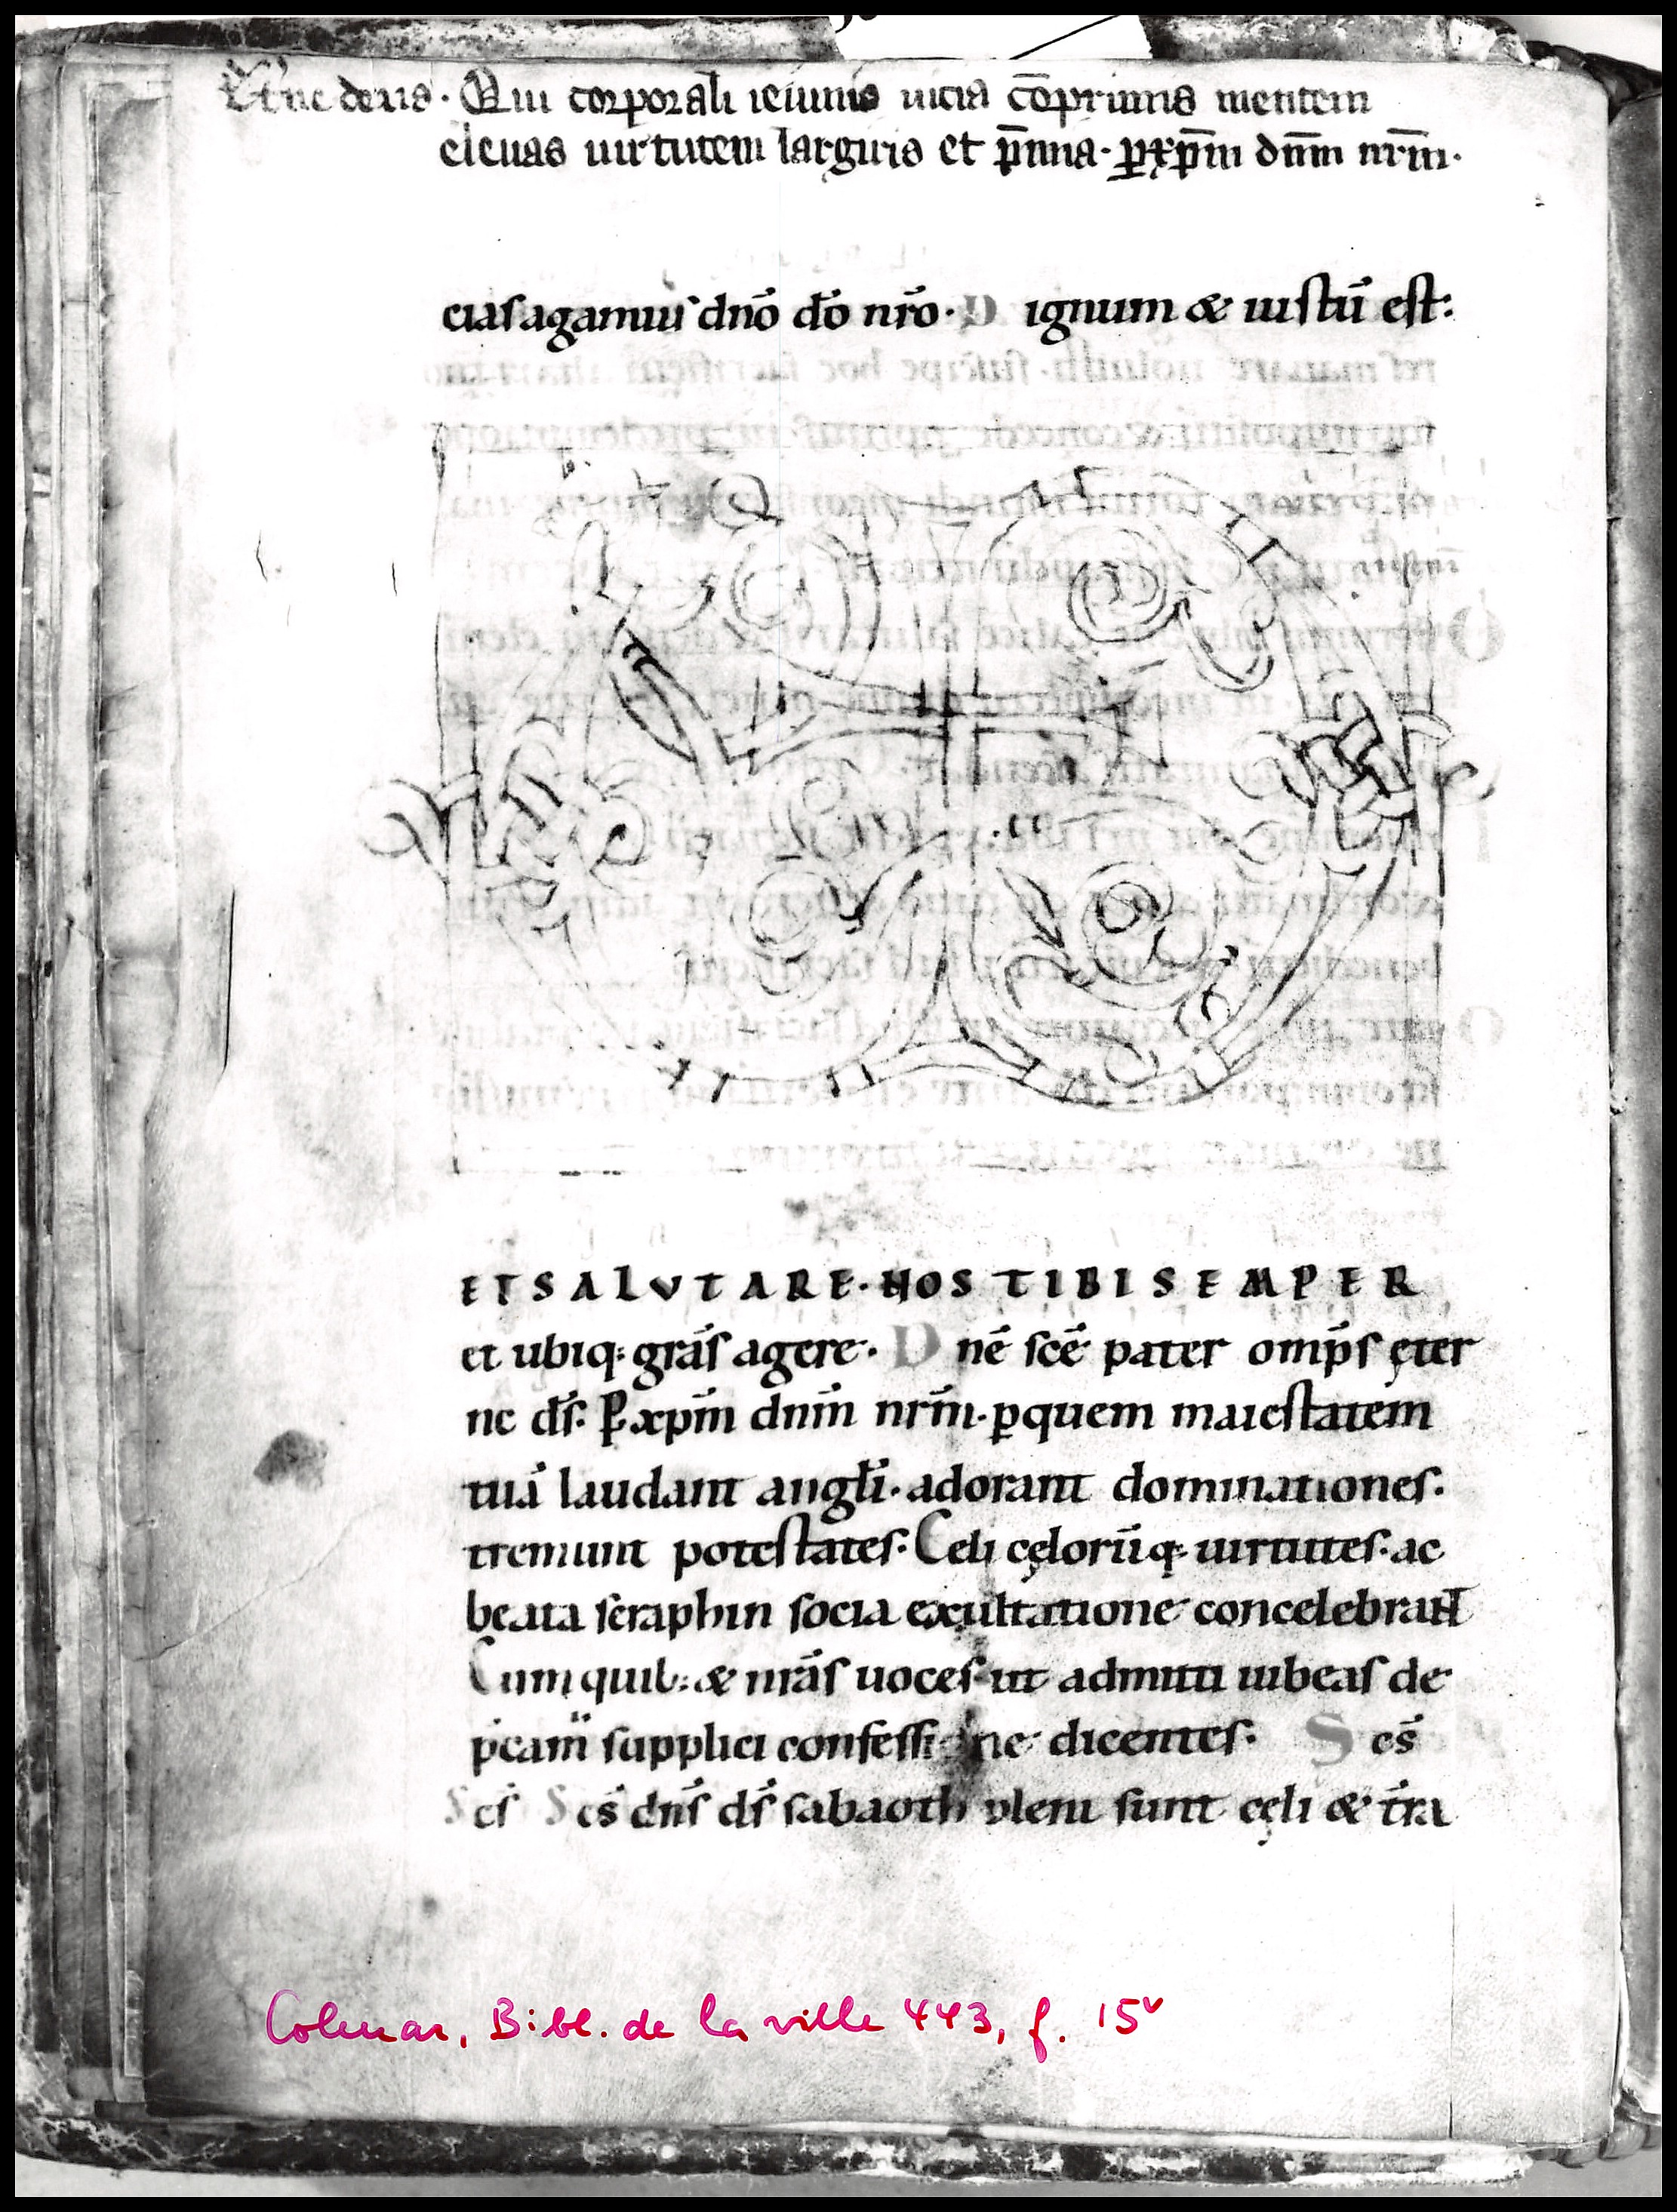 Et̾ne deus. Qui corporali ieiunio uicia co̅primis mentem
eleuas uirtutem largiris et p̅mia. p̲ xp̅m dn̅m nr̅m.
ciaſ agamuſ dn̅o d̅o nr̅o. D ignum & iuſtu̅ eſt:
ET SALVTARE. NOS TIBI SEMPER
et ubiq: gra̅ſ agere. D ne̅ ſce̅ pater omp̅ſ ęter
ne d̅ſ. P̲ xp̅m dn̅m nr̅m. ꝑquem maieſtatem
tua̅ laudant angl̅i. adorant dominationeſ.
tremunt poteſtateſ. Celi cęloru̅q: uirtuteſ. ac
beata ſeraphin ſocia exultatione concelebraNT
Cum quib: & nr̅aſ uoceſ ut admitti iubeaſ de
p̅cam̅ ſupplici confeſſione dicenteſ. S cs̅
S cſ̅ S cs̅ dn̅ſ d̅ſ ſabaoth pleni ſunt cęli & t̅ra
Colmar, Bibl. de la ville 443, f. 15v